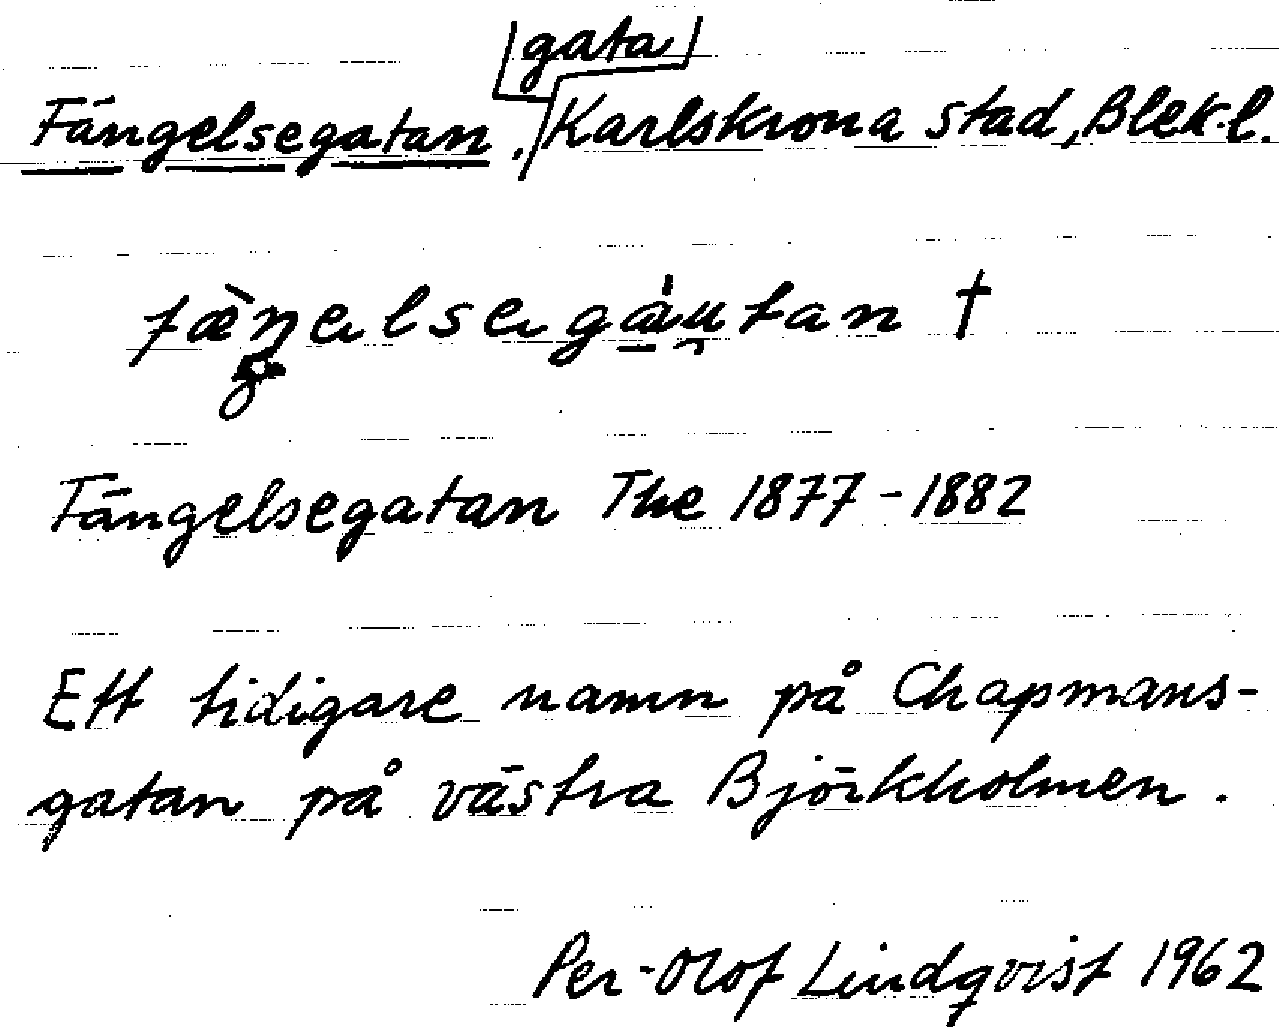 gata
Fängelsegatan. Karlskrona stad, Blek.l.
fæ̀ŋelsegáu̯tan †
Fängelsegatan The 1877-1882
Ett tidigare namn på Chapmans-
gatan på västra Björkholmen.
Per-Olof Lindqvist 1962